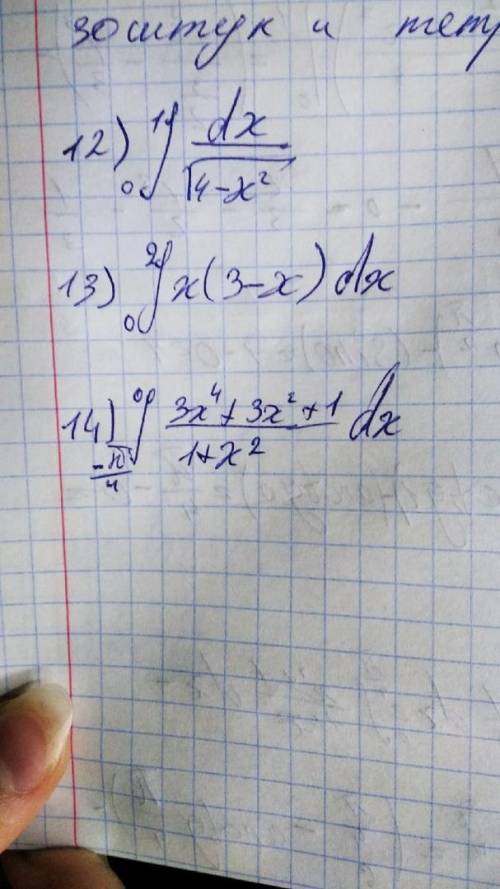 зо штук и тетр
12) ₀∫¹ dx / √(4-x²)
13) ₀∫² x(3-x)dx
14) ₋π/₄∫⁰ (3x⁴+3x²+1)/(1+x²) dx